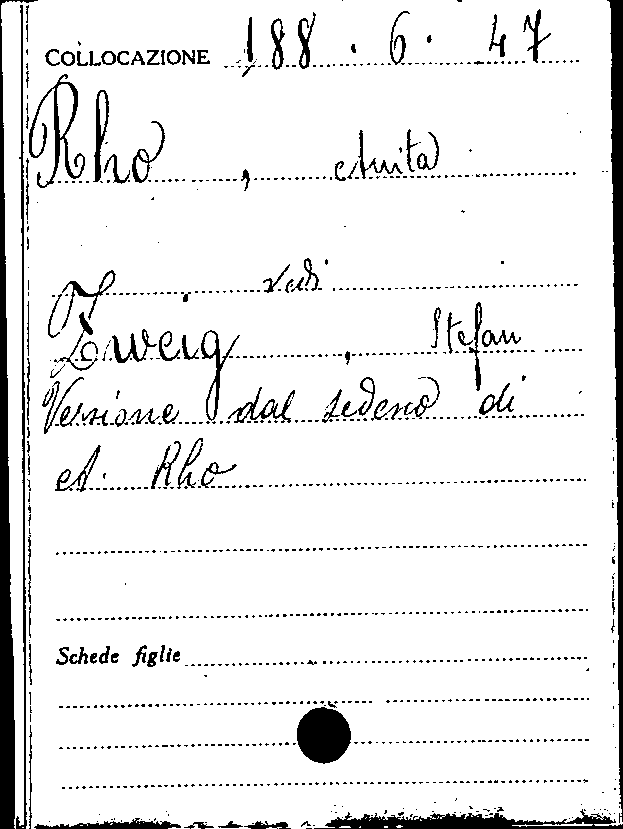 COLLOCAZIONE 188.6.47
Rho, Anita
vedi
Zweig, Stefan
Versione dal tedesco di
A. Rho
Schede figlie